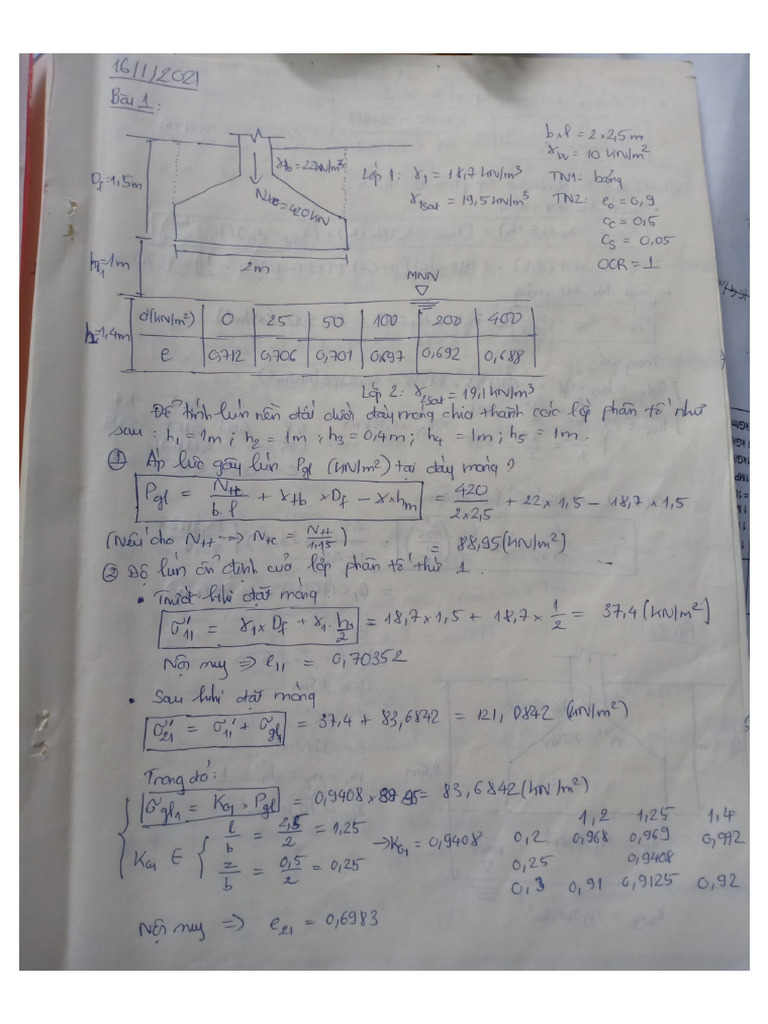 16/1/2021
Bài 1:
b×l = 2×2,5m
γw = 10 KN/m²
TN1: bảng
TN2: e₀ = 0,9
Cc = 0,5
Cs = 0,05
OCR = 1
γtb = 22KN/m³
Lớp 1: γ1 = 18,7 KN/m³
γ1sat = 19,5 KN/m³
Df = 1,5m
Ntc = 420KN
2m
h1 = 1m
MNN
1,4m
σ(KN/m²) 0 25 50 100 200 400
e 0,712 0,706 0,701 0,697 0,692 0,688
Lớp 2: γsat = 19,1 KN/m³
Để tính lún nền đất dưới đáy móng chia thành các lớp phân tố như
sau : h1 = 1m ; h2 = 1m ; h3 = 0,4m ; h4 = 1m ; h5 = 1m .
① Áp lực gây lún Pgl (KN/m²) tại đáy móng ?
Pgl = Ntt/b.l + γtb × Df − γ×hm = 420/2×2,5 + 22×1,5 − 18,7×1,5
(Nếu cho Ntt → Ntc = Ntt/1,15) = 88,95(KN/m²)
② Độ lún ổn định của lớp phân tố thứ 1.
• Trước khi đặt móng
σ'11 = γ1×Df + γ1.h1/2 = 18,7×1,5 + 18,7×1/2 = 37,4 (KN/m²)
Nội suy ⇒ e11 = 0,70352
• Sau khi đặt móng
σ'21 = σ'11 + σgl1 = 37,4 + 83,6842 = 121,0842 (KN/m²)
Trong đó:
σgl1 = K01 × Pgl = 0,9408 × 88,95 = 83,6842 (KN/m²)
K01 ∈ { l/b = 2,5/2 = 1,25
z/b = 0,5/2 = 0,25
→ K01 = 0,9408
1,2 1,25 1,4
0,2 0,968 0,969 0,972
0,25 0,9408
0,3 0,91 0,9125 0,92
Nội suy ⇒ e21 = 0,6983